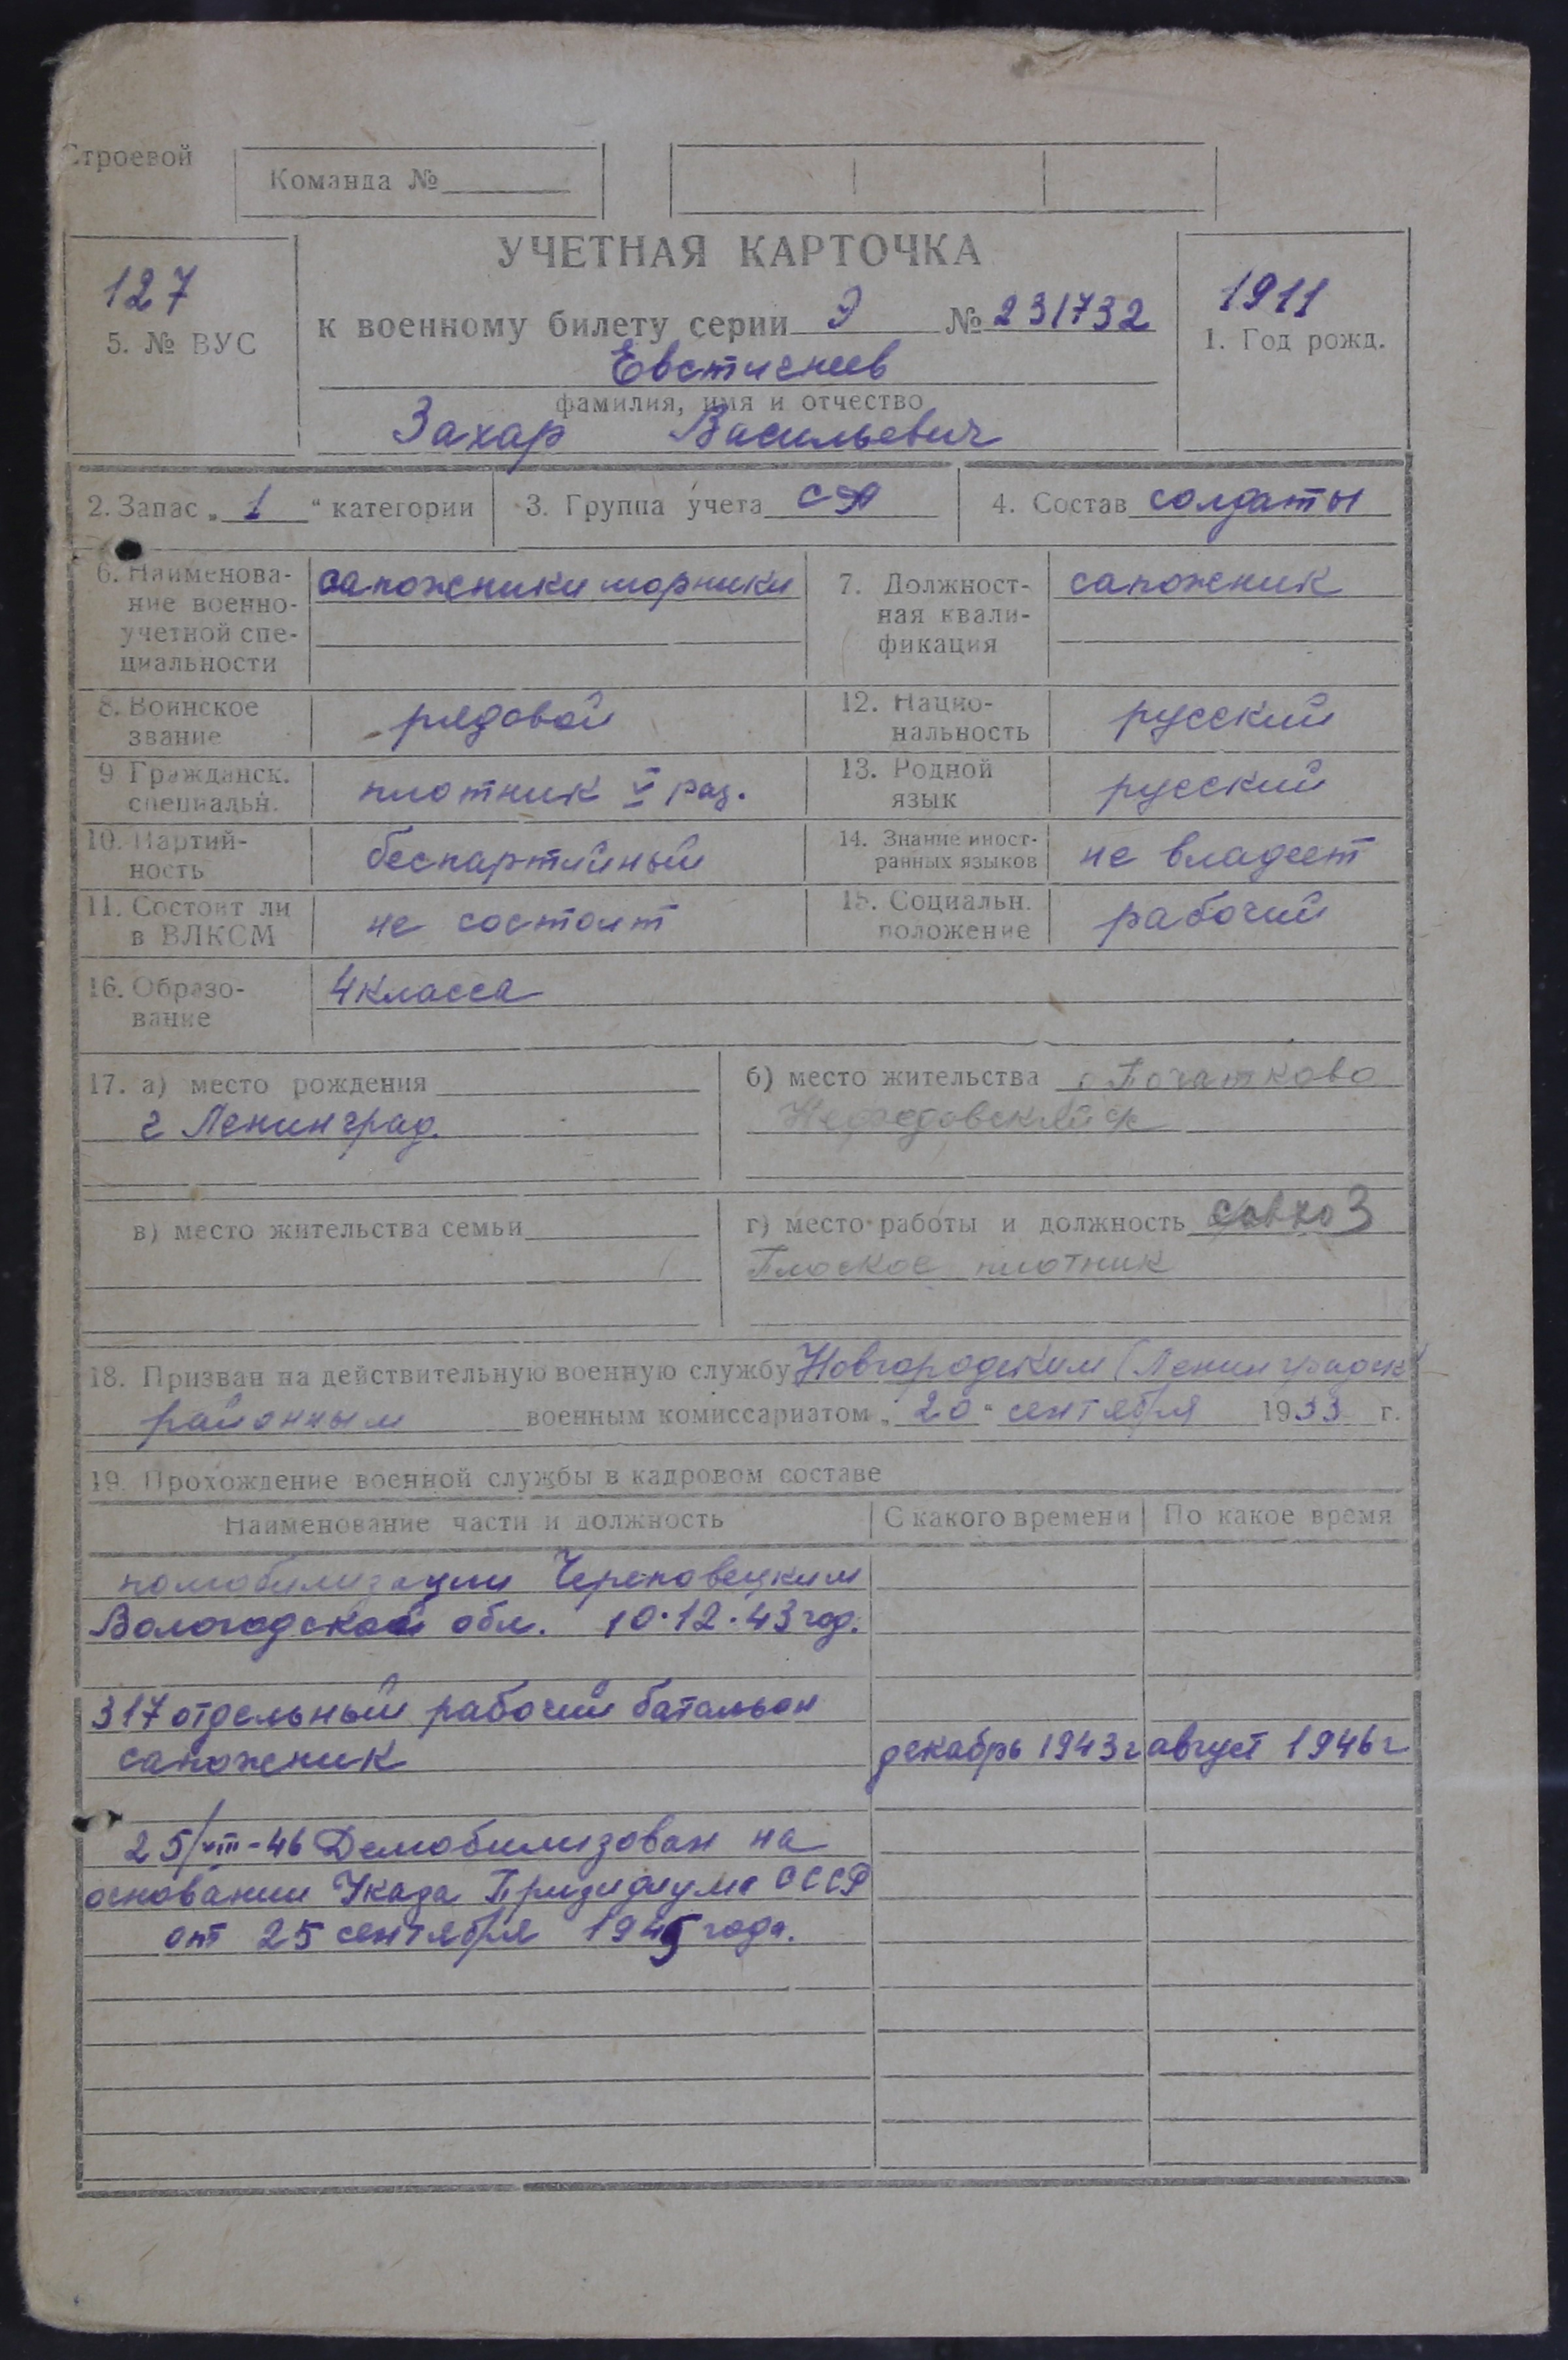 Строевой
Команда №
УЧЕТНАЯ КАРТОЧКА
127
5. № ВУС
к военному билету серии Э № 231732
1911
1. Год рожд.
Евстигнеев
фамилия, имя и отчество
Захар Васильевич
2. Запас „1“ категории
3. Группа учета СА
4. Состав солдаты
6. Наименова-
ние военно-
учетной спе-
циальности
сапожники шорники
7. Должност-
ная квали-
фикация
сапожник
8. Воинское
звание
рядовой
12. Нацио-
нальность
русский
9 Гражданск.
специальн.
плотник V раз.
13. Родной
язык
русский
10. Партий-
ность
беспартийный
14. Знание иност-
ранных языков
не владеет
11. Состоит ли
в ВЛКСМ
не состоит
15. Социальн.
положение
рабочий
16. Образо-
вание
4 класса
17. а) место рождения
г Ленинград.
б) место жительства Початково
в) место жительства семьи
г) место работы и должность совхоз
Плоское плотник
18. Призван на действительную военную службу Новгородским (Ленинградск
районным военным комиссариатом „20“ сентября 1933 г.
19. Прохождение военной службы в кадровом составе
Наименование части и должность
С какого времени
По какое время
помобилизации Череповецким
Вологодской обл. 10.12.43 год.
317 отдельный рабочий батальон
сапожник
декабрь 1943 г
август 1946 г
25/VIII-46 Демобилизован на
основании Указа Призидиума СССР
от 25 сентября 1945 года.